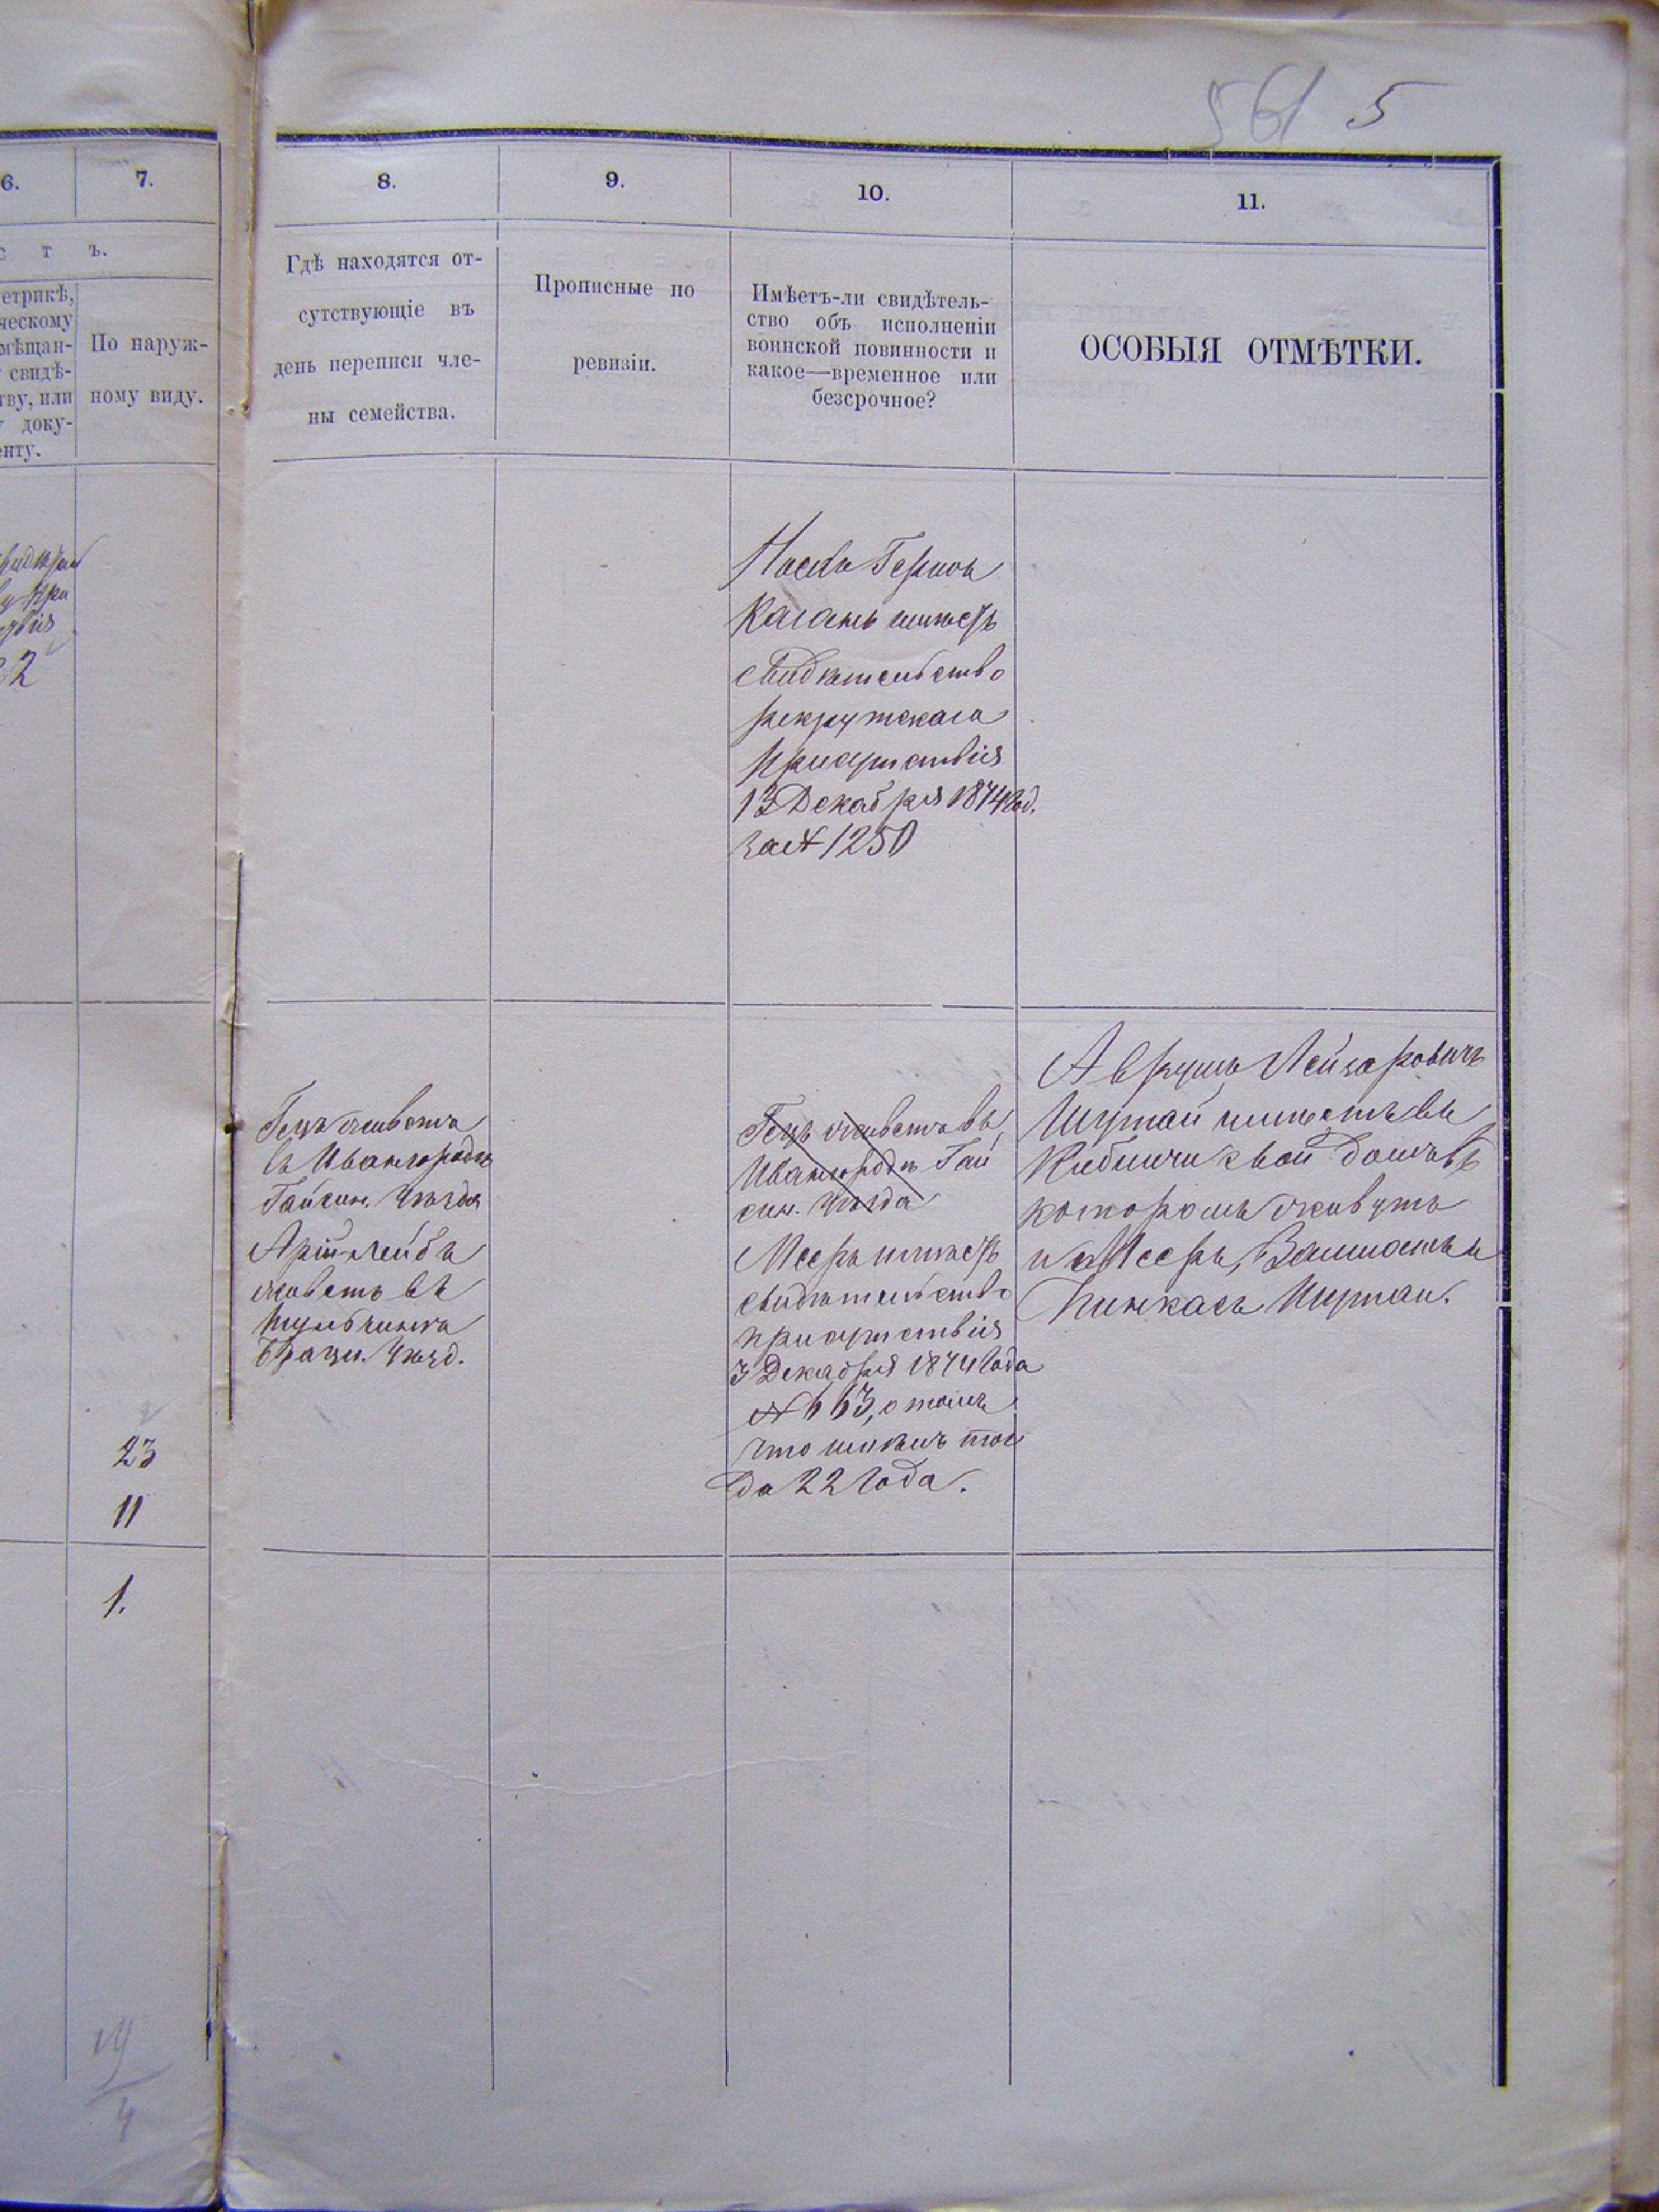 561 5
6.
7.
8.
9.
10.
11.
с т ъ.
етрикѣ,
ческому
мѣщан-
свидѣ-
тву, или
доку-
енту.
По наруж-
ному виду.
Гдѣ находятся от-
сутствующіе въ
день переписи чле-
ны семейства.
Прописные по
ревизіи.
Имѣетъ-ли свидѣтель-
ство объ исполненіи
воинской повинности и
какое—временное или
безсрочное?
ОСОБЫЯ ОТМѢТКИ.
2
Каганъ имѣетъ
свидѣтельство
рекрутскаго
присутствія
13 Декабря 1874 год.
за № 1250
Гецъ живетъ
въ Ивангородѣ
Гайсин. Уѣзда
Арій-Лейбъ
живетъ въ
Тульчинѣ
Брацл. Уѣзд.
Гецъ живетъ въ
Ивангородѣ Гай
син. Уѣзда
Мееръ имѣетъ
свидѣтельство
присутствія
3 Декабря 1874 года
№ 663, о томъ
что имѣетъ
22 года.
Аврумъ Лейзоровичъ
имѣетъ въ
свой домъ въ
которомъ живутъ
и Мееръ,
Пинкасъ
23
11
1.
19
4